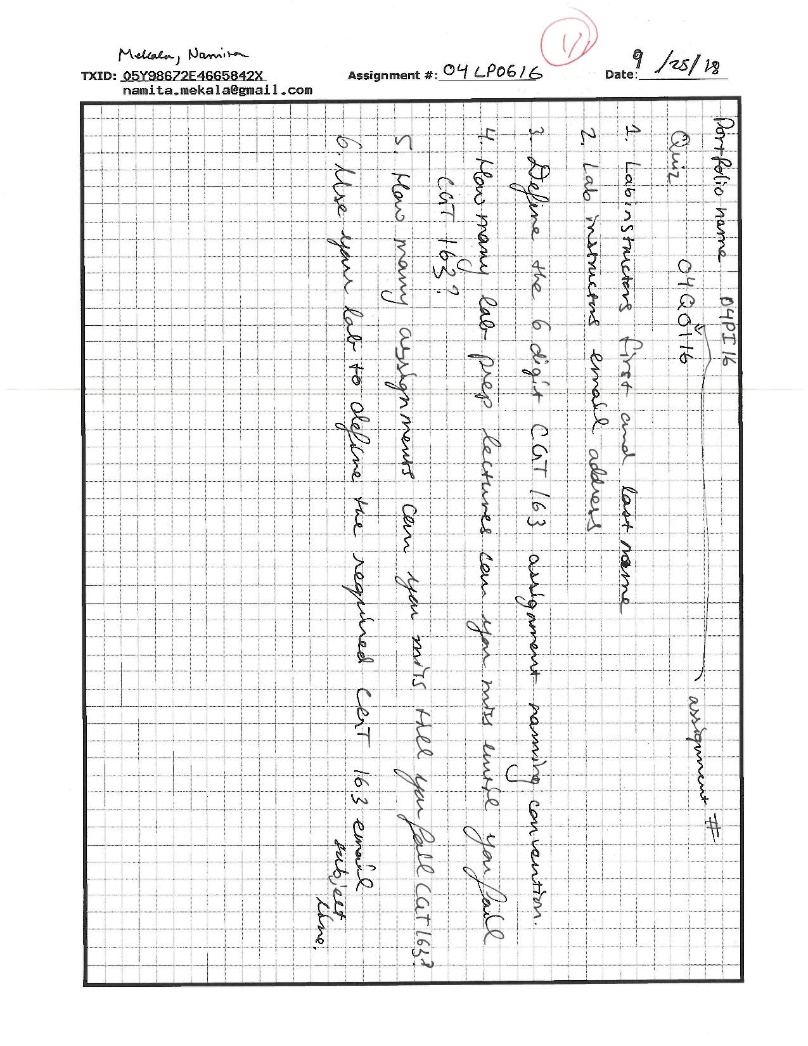 Mekala, Namitra
TXID: 05Y98672E4665842X
namita.mekala@gmail.com
Assignment #: 04LP0616
Date: 9/25/18
Portfolio name 04PI16
Quiz 04Q0116 assignment #
1. Lab instructors first and last name
2. Lab instructors email address
3. Define the 6 digit CGT 163 assignment naming convention.
4. How many lab prep lectures can you miss until you fail
CGT 163?
5. How many assignments can you miss till you fail CGT 163?
6. Use your lab to define the required CGT 163 email
subject
line.